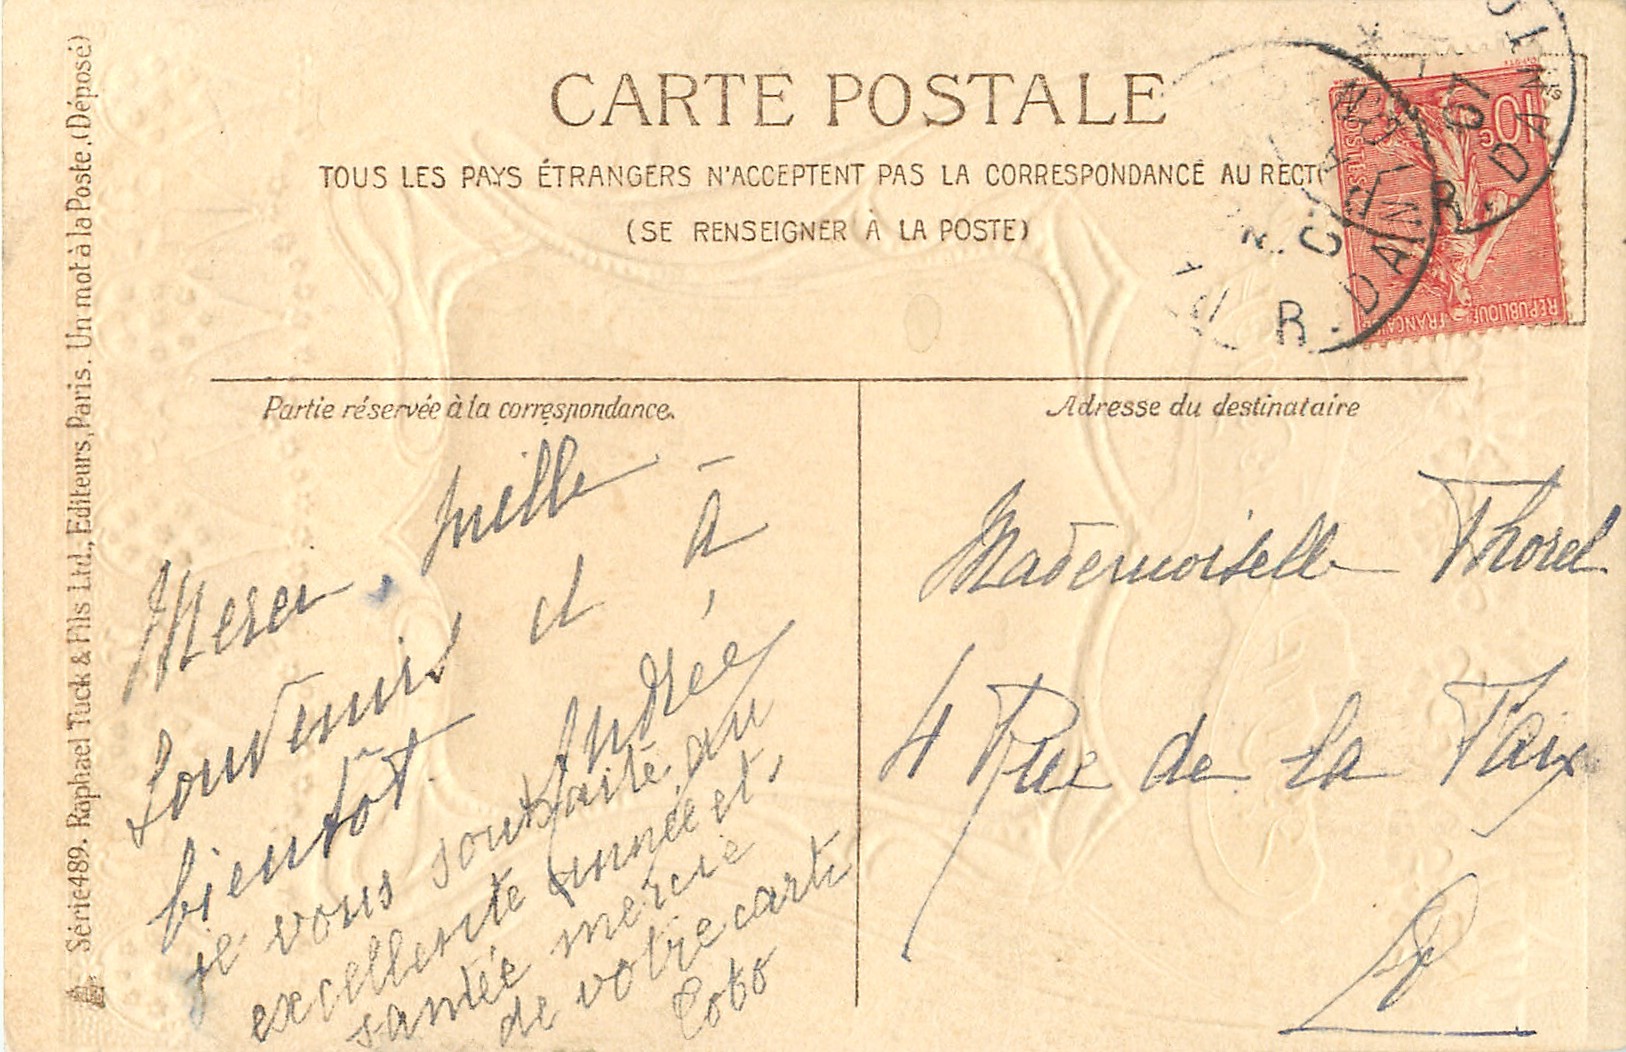 CARTE POSTALE
TOUS LES PAYS ÉTRANGERS N'ACCEPTENT PAS LA CORRESPONDANCE AU RECTO
(SE RENSEIGNER À LA POSTE)
Partie réservée à la correspondance.
Merci, mille
souvenirs et à
bientôt. Andrée
je vous souhaite une
excellente année et,
santée mercie
de votre carte
Cobo
Adresse du destinataire
Mademoiselle Thorel
4 Rue de la Paix
Série 489. Raphael Tuck & Fils Ltd., Editeurs, Paris. Un mot à la Poste. (Déposé)
10c
POSTES
REPUBLIQUE FRANÇAISE
R. DAN
07
R. DAN